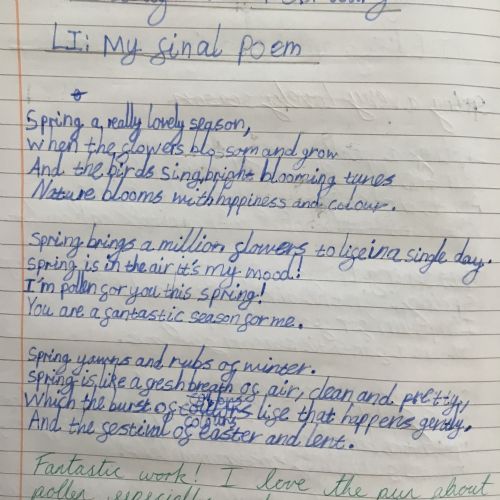 LI: My final Poem
Spring a really lovely season,
When the flowers blossom and grow
And the birds sing bright blooming tunes
Nature blooms with happiness and colour.
Spring brings a million flowers to life in a single day.
Spring is in the air it's my mood!
I'm pollen for you this spring!
You are a fantastic season for me.
Spring yawns and rubs of winter.
Spring is like a fresh breath of air, clean and pretty,
Which the burst of colours life that happens gently.
And the festival of easter and lent.
Fantastic work! I love the pun about
pollen especially